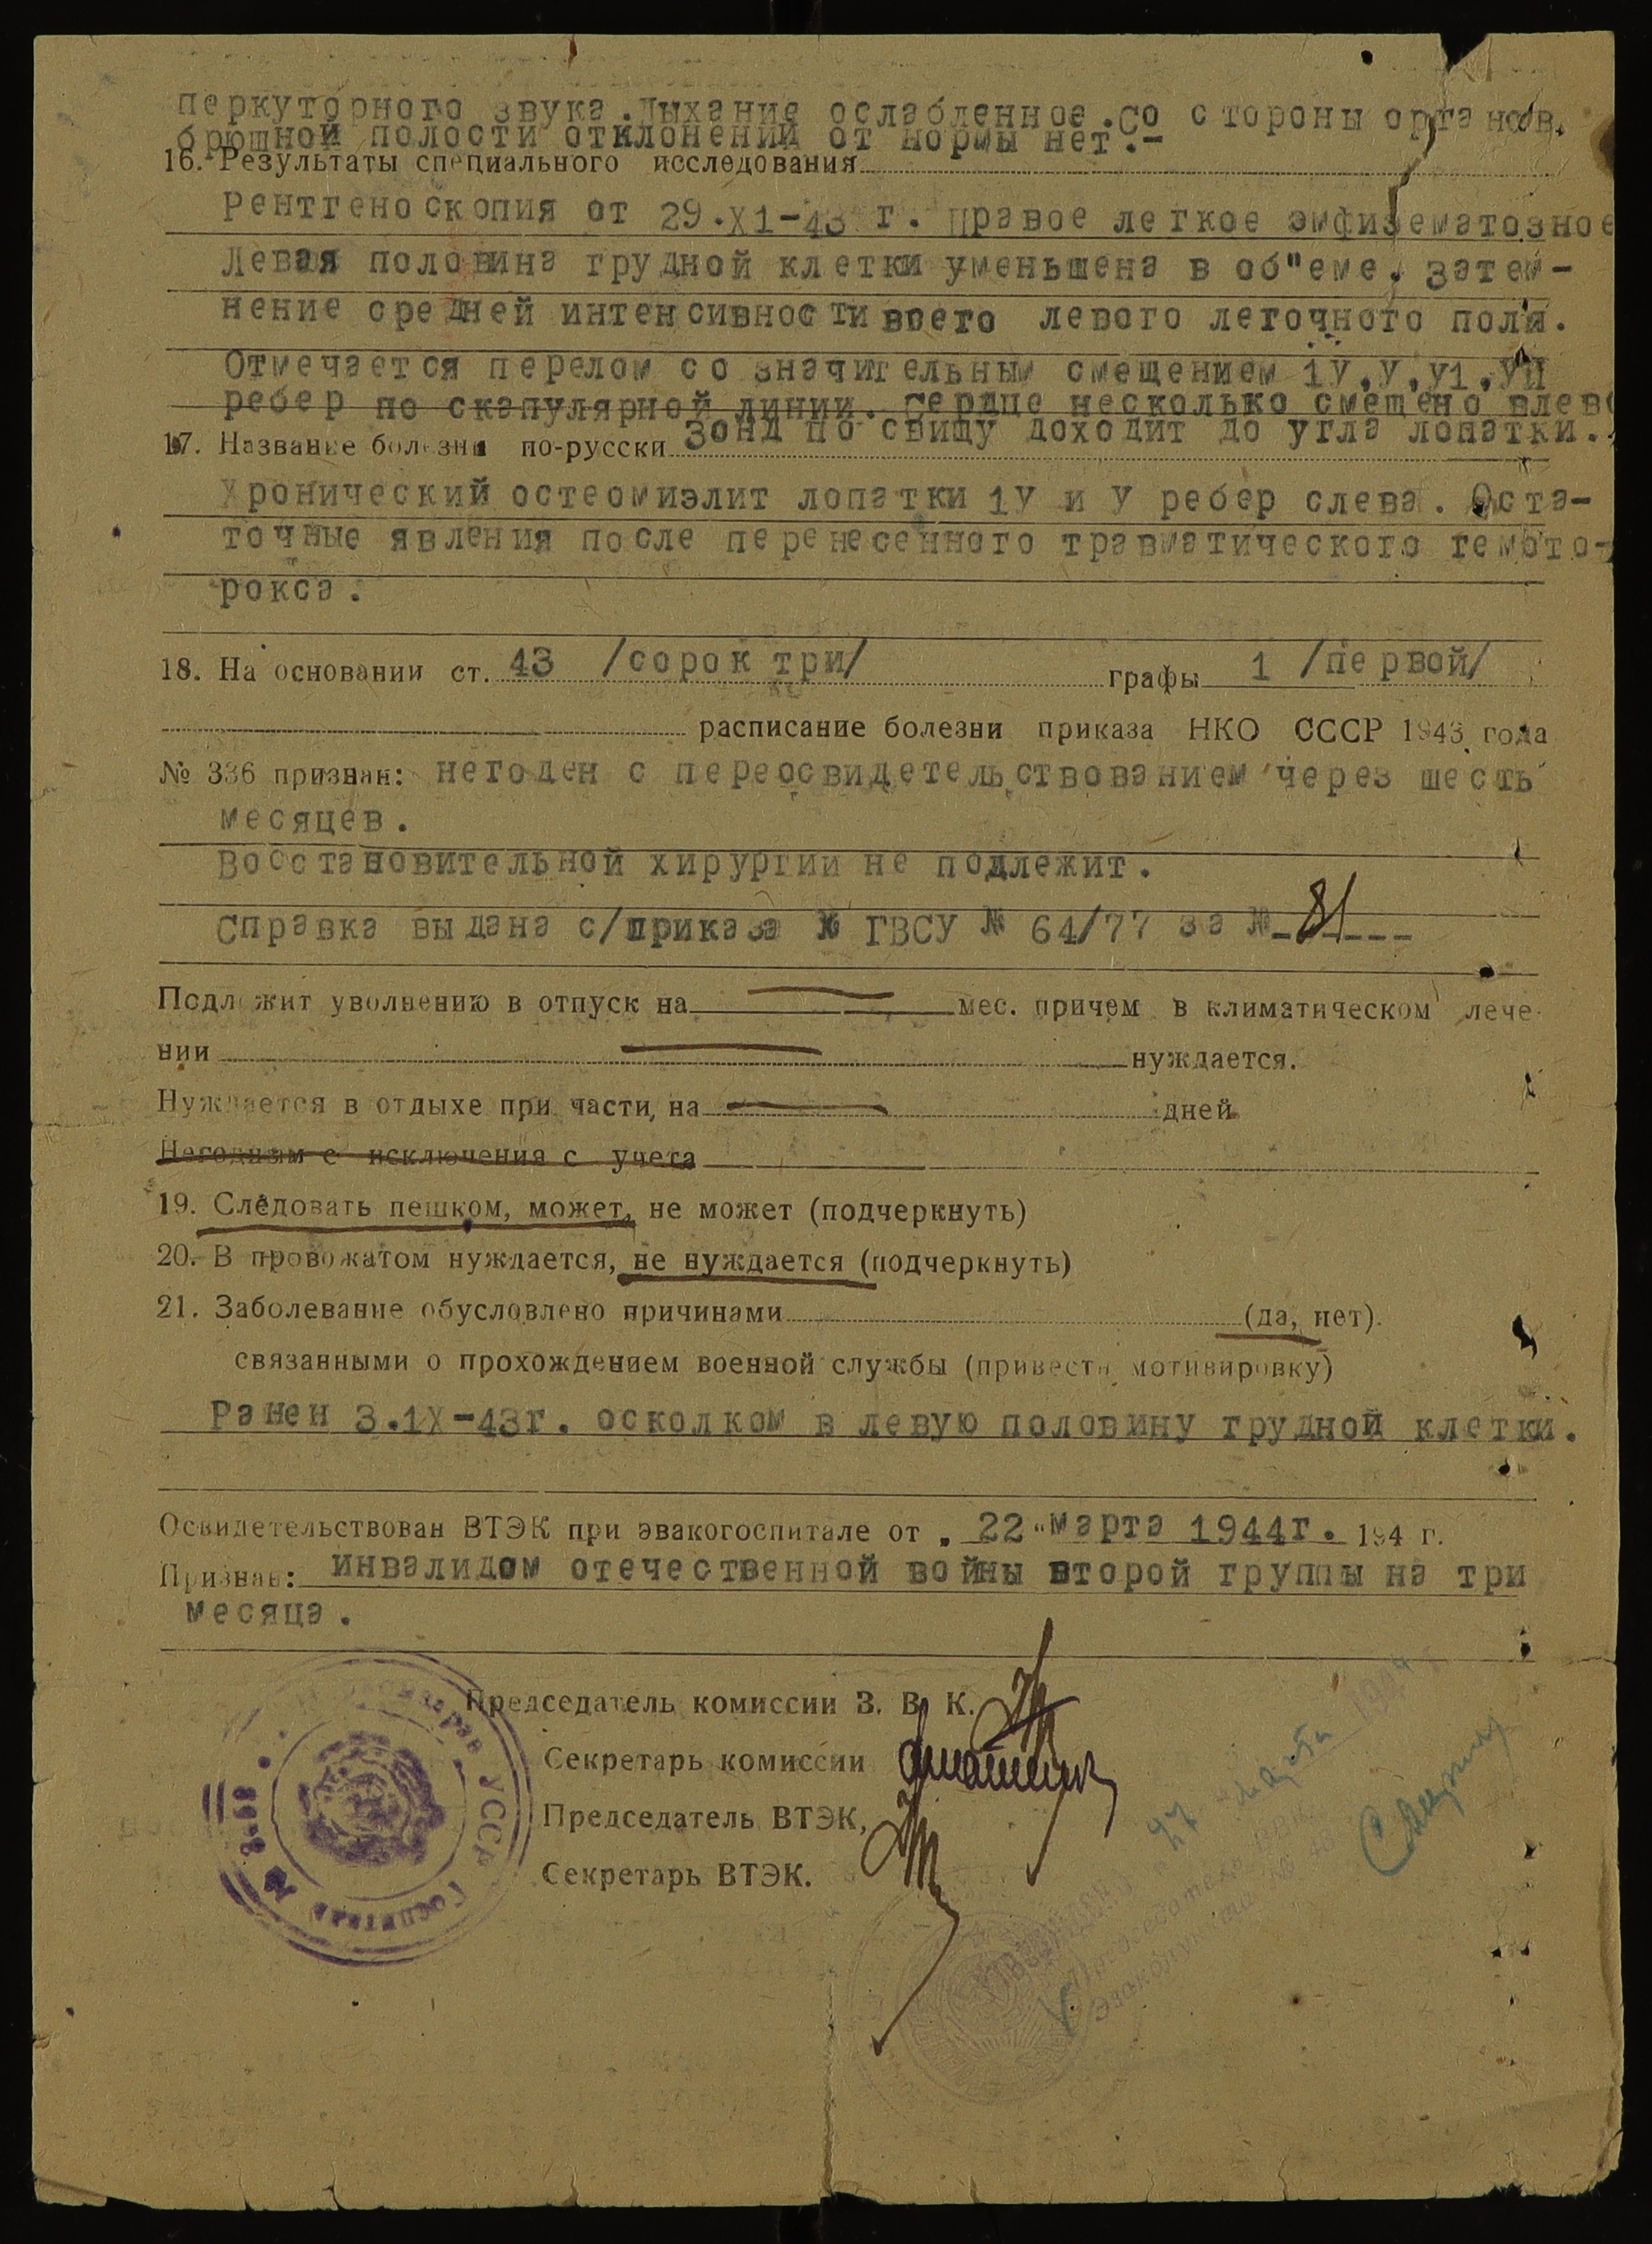 перкуторного звука.Дыхание ослабленное.Со стороны органов
брюшной полости отклонений от нормы нет.-
16. Результаты специального исследования
Рентгеноскопия от 29.Х1-43 г. Правое легкое эмфизематозное
Левая половина грудной клетки уменьшена в об"еме, затем-
нение средней интенсивности всего левого легочного поля.
Отмечается перелом со значительным смещением 1У,У,У1,УП
ребер по скапулярной линии. Сердце несколько смещено влево
Зонд по свищу доходит до угла лопатки.
17. Название болезни по-русски
Хронический остеомиэлит лопатки 1У и У ребер слева. Оста-
точные явления после перенесенного травматического гемото-
рокса.
18. На основании ст. 43 /сорок три/ графы 1 /первой/
расписание болезни приказа НКО СССР 1943 года
№ 336 признан: негоден с переосвидетельствованием через шесть
месяцев.
Восстановительной хирургии не подлежит.
Справка выдана с/приказа № ГВСУ № 64/77 за № 81
Подлежит уволнению в отпуск на мес. причем в климатическом лече-
нии нуждается.
Нуждается в отдыхе при части, на дней
Негодным с исключения с учета
19. Следовать пешком, может, не может (подчеркнуть)
20. В провожатом нуждается, не нуждается (подчеркнуть)
21. Заболевание обусловлено причинами (да, нет).
связанными о прохождением военной службы (привести мотивировку)
Ранен 3.1Х-43г. осколком в левую половину грудной клетки.
Освидетельствован ВТЭК при эвакогоспитале от „22"марта 1944г. 194 г.
Признан: инвалидом отечественной войны второй группы на три
месяца.
Председатель комиссии З. В. К.
Секретарь комиссии
Председатель ВТЭК,
Секретарь ВТЭК.
УССР
Госпиталь
27 марта 1944